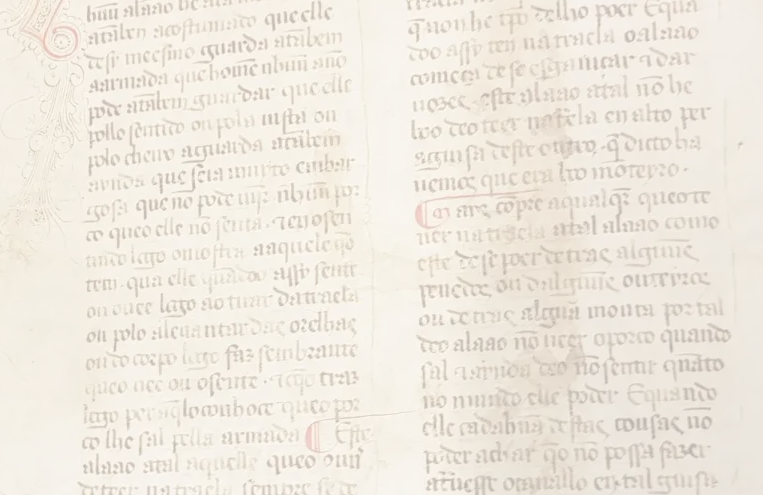 huũ alaão he
atãbẽ acostumado que elle
desy meesmo guarda atãbem
aarmada que home nhuũ ano
pode atãbem guardar que elle
pollo sentido ou pola uista ou
polo cheiro aguarda atãbem
aynda que seia muyto embar
gosa que no pode uijr nhuũ por
co que o elle nõ senta. τ en o sen
tindo logo o mostra aaquele q̃ o
tem. qua elle quando assy sente
ou ouue logo ao tirar da traela
ou polo aleuantar das orelhas
ou do corpo logo faz senbrante
que o uee ou o sente. τ
logo per aq̃lo conhoce que o por
co lhe sal pella armada Este
alaão atal aquelle que o ouuer
de teer na traela senpre se de
q̃ non he tp̃o delho poer E qua
do assy ten na traela o alaão
começa de se esganiçar τ dar
uozes. este alaão atal nõ he
boo deo teer na tr̃ela en alto per
aguisa deste outro. q̃ dicto ha
uemos que era lto monteyro.
Mays cõpre a qual q̃r que o te
uer na traela atal alaão como
este de se poer detras alguũs
penedos ou dalguũs outeyros
ou detras algũa mouta por tal
deo alaão nõ ueer o porco quando
sal τ aynda deo nõ sentir quãto
no mundo elle poder E quando
elle cada hũa destas cousas nõ
poder achar q̃ o nõ possa fazer
atrauesse o caualo en tal guisa